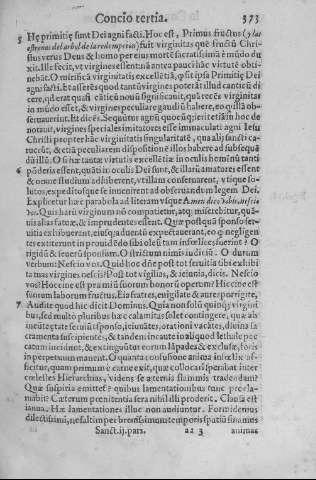 Concio tertia. 373
5 Hę primitię sunt Dei agni facti. Hoc est, Primus fructus (y las
estrenas del arbol de la redempcion) fuit virginitas quē fructū Chri-
stus verus Deus & homo per eius mortē sacratissimā ē mūdo du
xit. Ille fecit, vt virgines essent, nā antea pauci hāc virtutē obti-
nebāt. O mirificā virginitatis excellētiā, q̃ sit ipsa Primitię Dei
agni facti. bt asseres quod tantū virgines poterāt illud canticū di
cere, q̃d erat quasi cāticū nouū significauit, quā recēs virginitas
in mūdo esset, & virgines peculiare gaudiū habere, eo q̃ illā ob-
seruauerint. Et dicēs. Sequūtur agnū quocūq; ierit etiā in hoc de
notauit, virgines speciales imitatores esse immaculati agni Iesu
Christi propter hāc virginitatis singularitatē, qua alij sancti ca-
rucūt, & etiā peculiarem dispositionē illos habere ad subsequē
dū illū. O si hæ tantæ virtutis excellētiæ in oculis hominū tanti
6 pōderis essent, quāti in oculi Dei sunt, & illarū amatores essent
& omne studium adhiberent, vt illam conseruarent, vtique so-
lutos, expeditosque se inuenirent ad obseruandum legem Dei.
Explicetur hæc parabola ad literam vsque Amen dico vobis, nescio
vos. Quis harū virginum nō compatietur, atq; miserebitur, quā-
uis alias fatuæ, & imprudentes essent. Quæ postquā sponso ser-
uitia exhibuerunt, eiusq; aduentū expectauerant, eo q; negligen
tes extiterunt in prouidēdo sibi oleū tam infœlices fuerint? O
rigidū & seuerū sponsum. O strictum nimis iudiciū. O durum
verbum: Nescio vos. Quid hoc dñe post tot seruitia tibi exhibi
ta mas virgines nescis? Post tot vigilias, & ieiunia, dicis. Nescio
vos? Hoccine est præmiū suorum bonorū operum? Hiccine est
suorum laborum fructus. Eia fratres, euigilate & aures porrigite,
7 Audite quod hic dicit Dominus. Quia non solū quinq; virgini
bus, sed multo pluribus hæc calamitas solet contingere, quæ ab
ineūte ętate seruiūt sponso, ieiunātes, orationi vacātes, diuina sa
cramenta suscipientes, & tandem incaute in aliquod lethale pec-
catum incidunt, & extinguūtur eorum lāpades, & exclusæ, foris
in perpetuum manent. O quanta confusione anima infœlix af-
ficitur, quam primum è carne exit, quæ collocari sperabat inter
cœlestes Hierarchias, videns se æternis flammis tradendam?
Quæ suspiria emittet? quibus lamentationibus tunc procla-
mabit? Cæterum pœnitentia sera nihil illi proderit. Clausa est
ianua. Hæ lamentationes illuc non audiuntur. Formidemus
dilectissimi, ne stultam per breuissimum temporis spatiū fināmus
Sanct. ij. pars. aa 3 animas